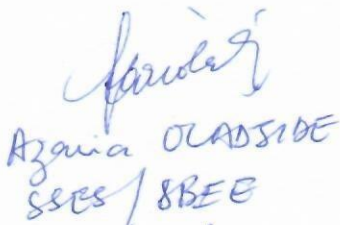 Azania OLADJIDE
SSES / SBEE